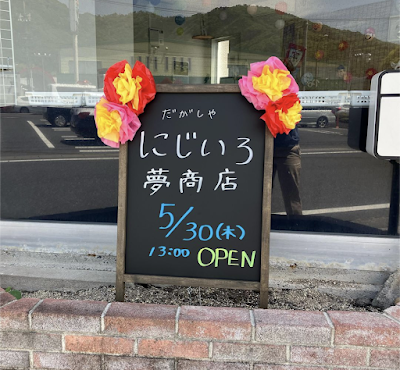 だがしや
にじいろ
夢商店
5/30(木)
13:00 OPEN